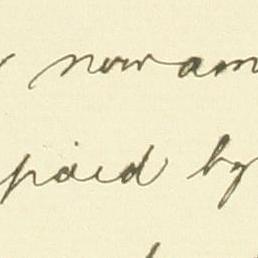 now am
paid by